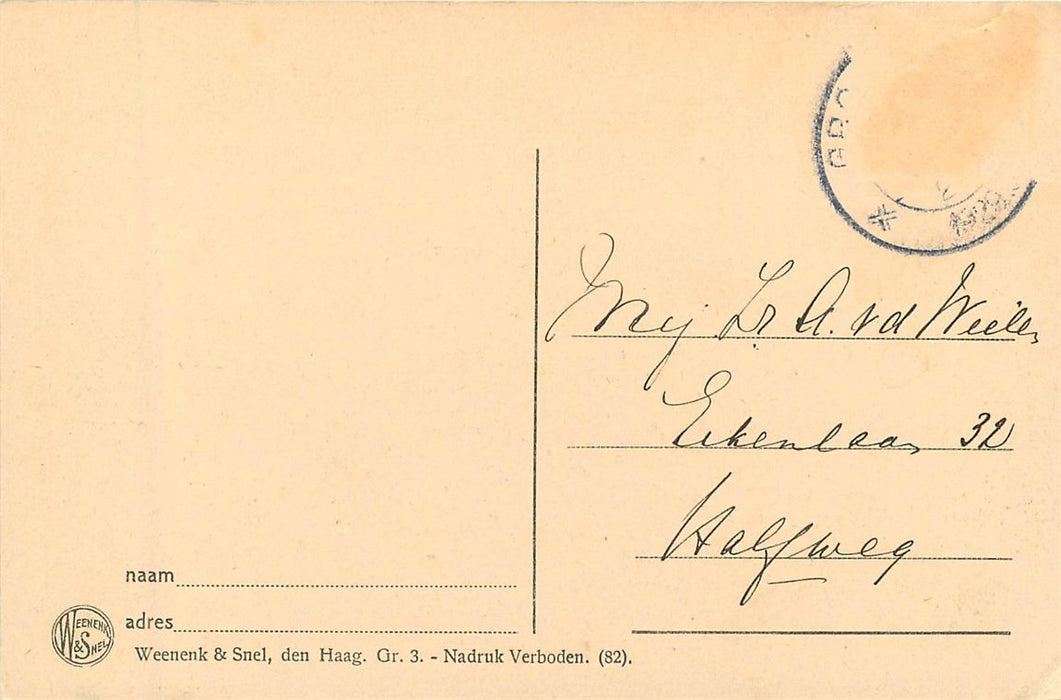 1928
Mej Zr A. v d Weilen
Eikenlaan 32
Halfweg
naam
adres
WEENENK & SNEL
Weenenk & Snel, den Haag. Gr. 3. - Nadruk Verboden. (82).